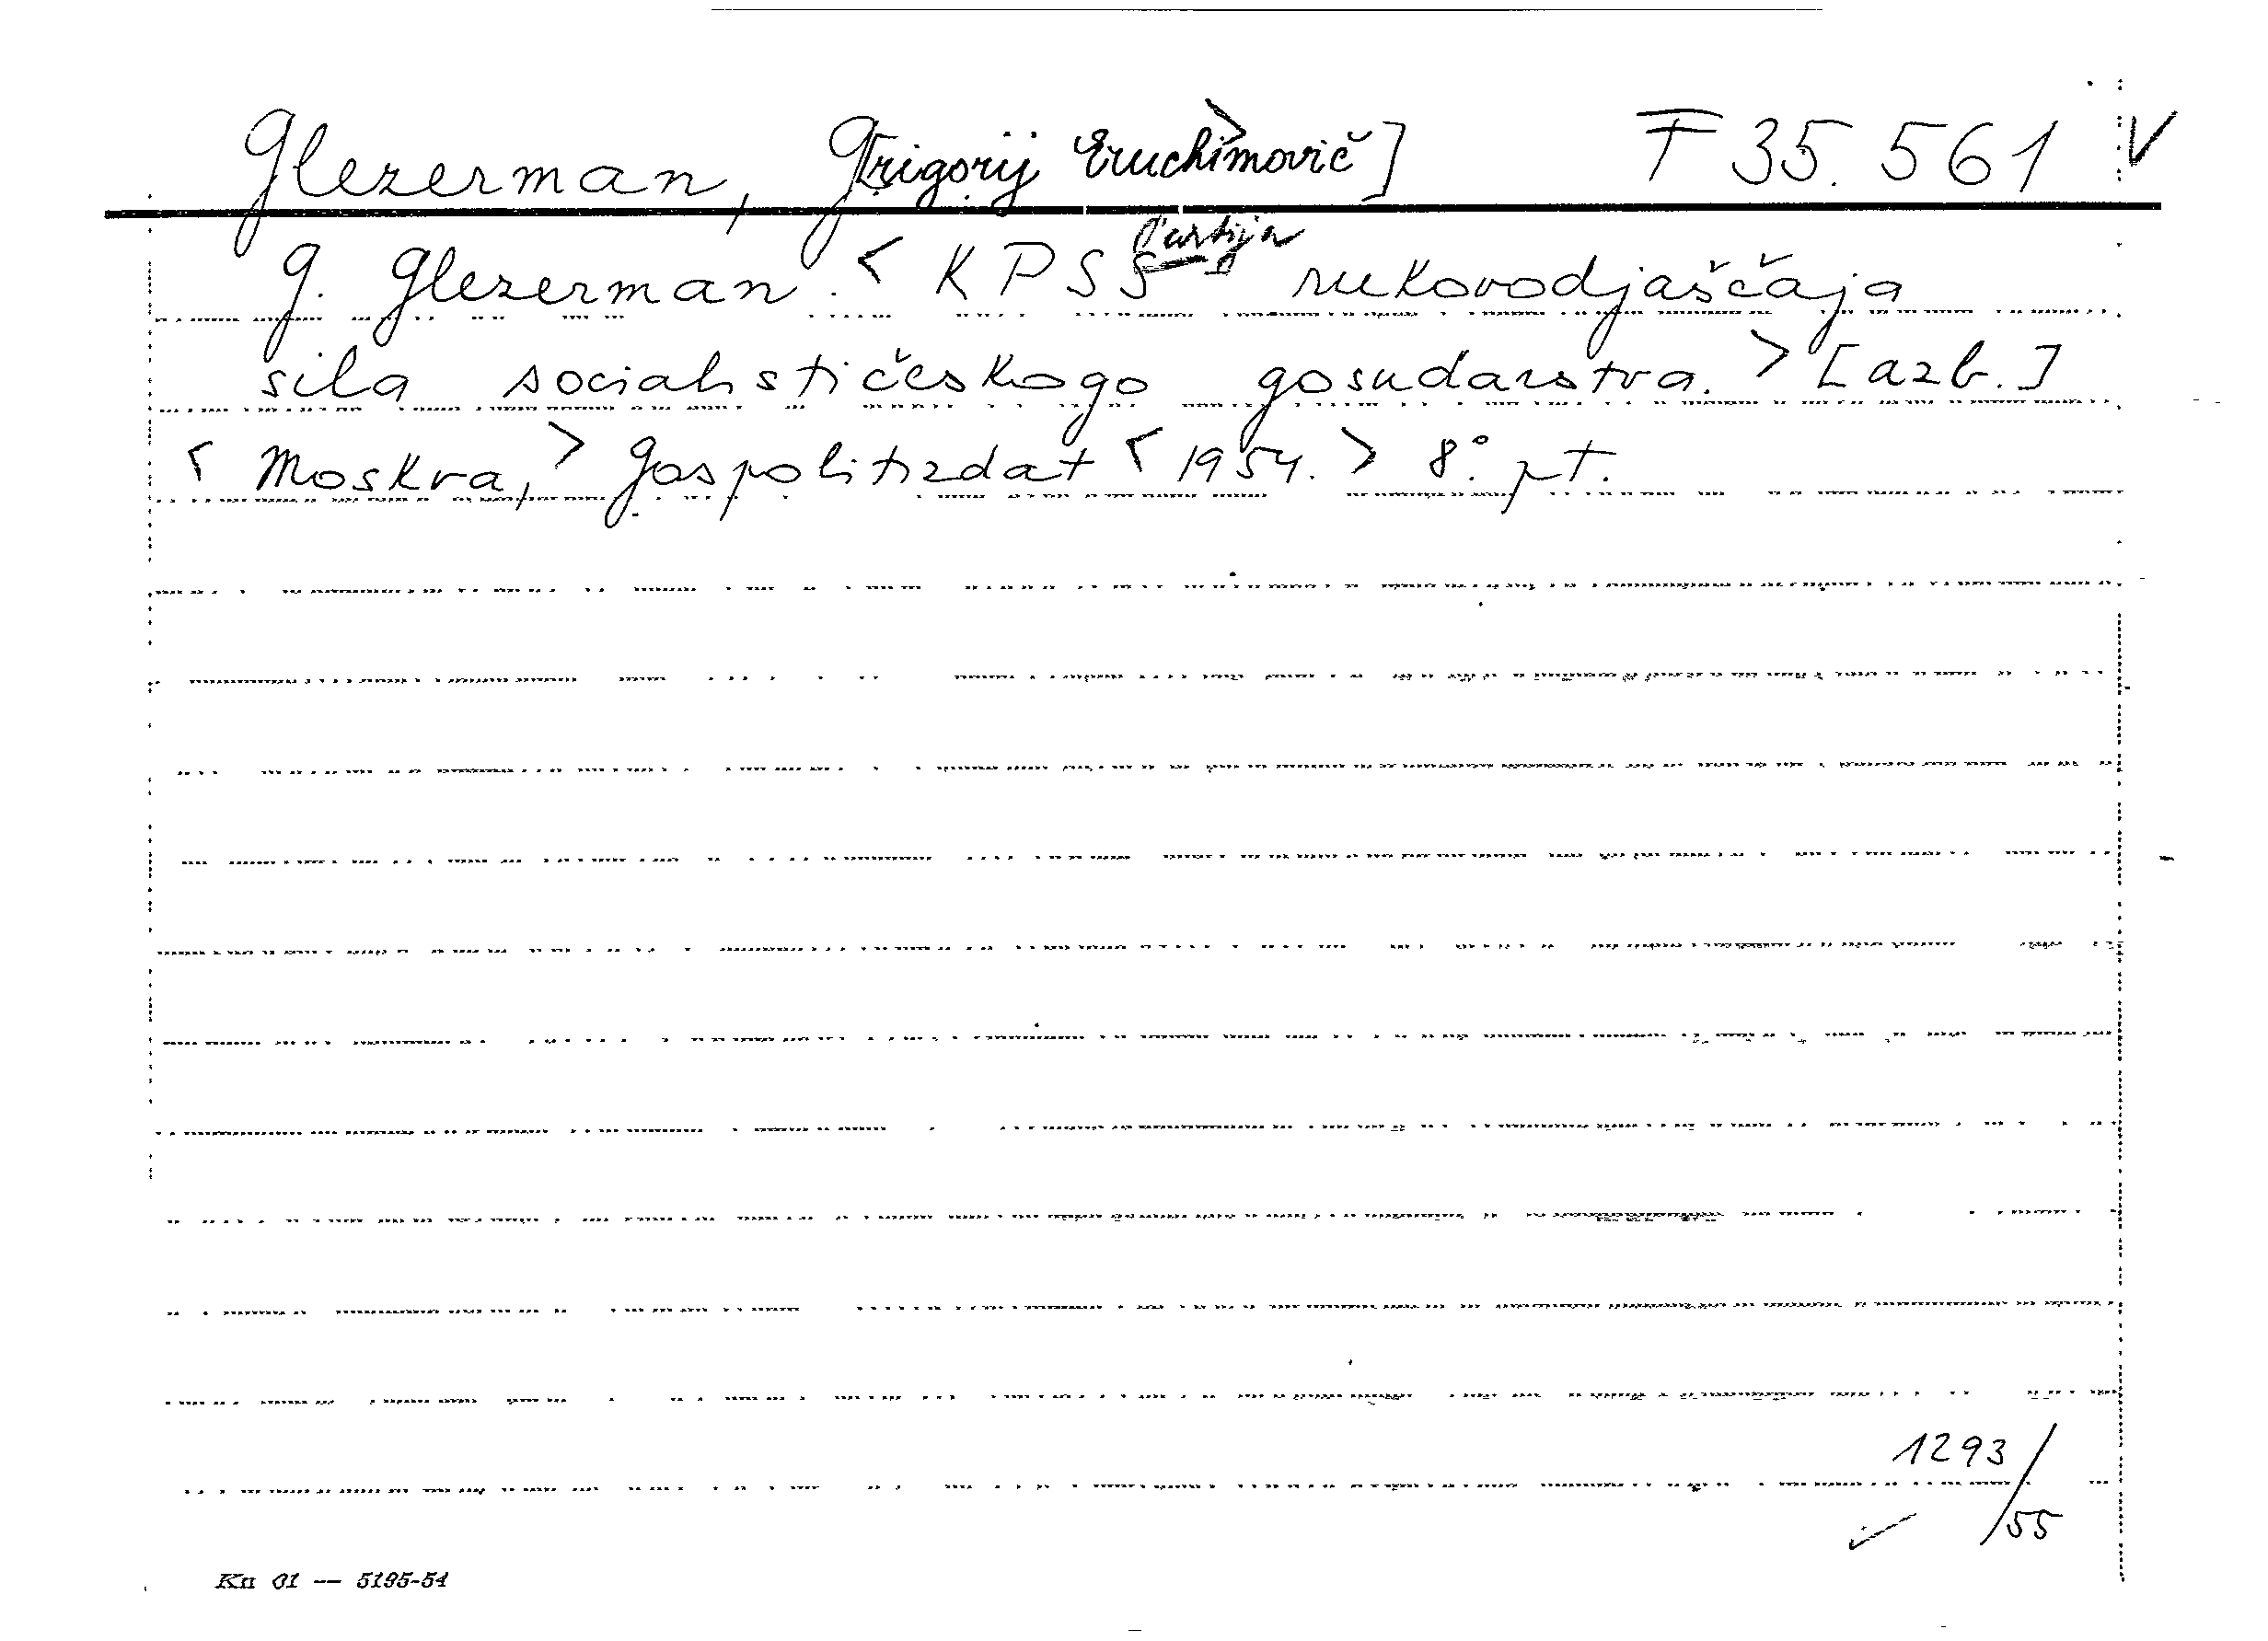 Glezerman, G[rigorij Eruchimovič] F 35.561 V
Partija
G. Glezerman. < KPSS rukovodjaščaja
sila socialističeskogo gosudarstva. > [azb.]
< Moskva, > Gospolitizdat < 1954. > 8°. pt.
1293/
/55
Kn 01 — 5195-54